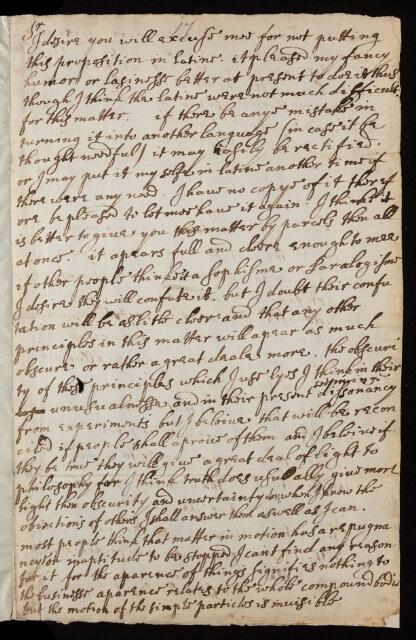 Sr
I desire you will excuse mee for not putting
this proposition in latine. it pleased my fancy
humor or lasinesse better at present to doe it thus
though I think the latine were not much difficult
for this matter. if there be anye mistake in
turning it into another language (in case it be
thought needful) it may easily be rectified.
or I may put it my selfe in latine another time if
there were any need. I have no copye of it theref
ore be pleased to let mee have it again. I think it
is better to give you this matter by parcels then all
at once. it apears full and cleere enough to mee
if other people think it a Sophisme or Paralogisme
I desire they will confute it. but I doubt their confu
tation will be as litle cleere and that any other
principles in this matter will apear as much
obscure or rather a great deale more. the obscuri
ty of these principles which I use lyes I think in their
unusualnesse and in their present seeming dissonancy
from experiments but I beleive that will be recon
ciled if people shall aprove of them and I beleive if
they be true they will give a great deal of light to
philosophy for I think truth does usually give more
light then obscurity and uncertainty. when I know the
obiections of others I shall answer them as well as I can.
most people think that matter in motion has a repugna
ncy or inaptitude to be stopped I cant find any reason
for it for the aparence of things signifies nothing to
the businesse aparence relates to the whole compound bodie
but the motion of the simple particles is invisible